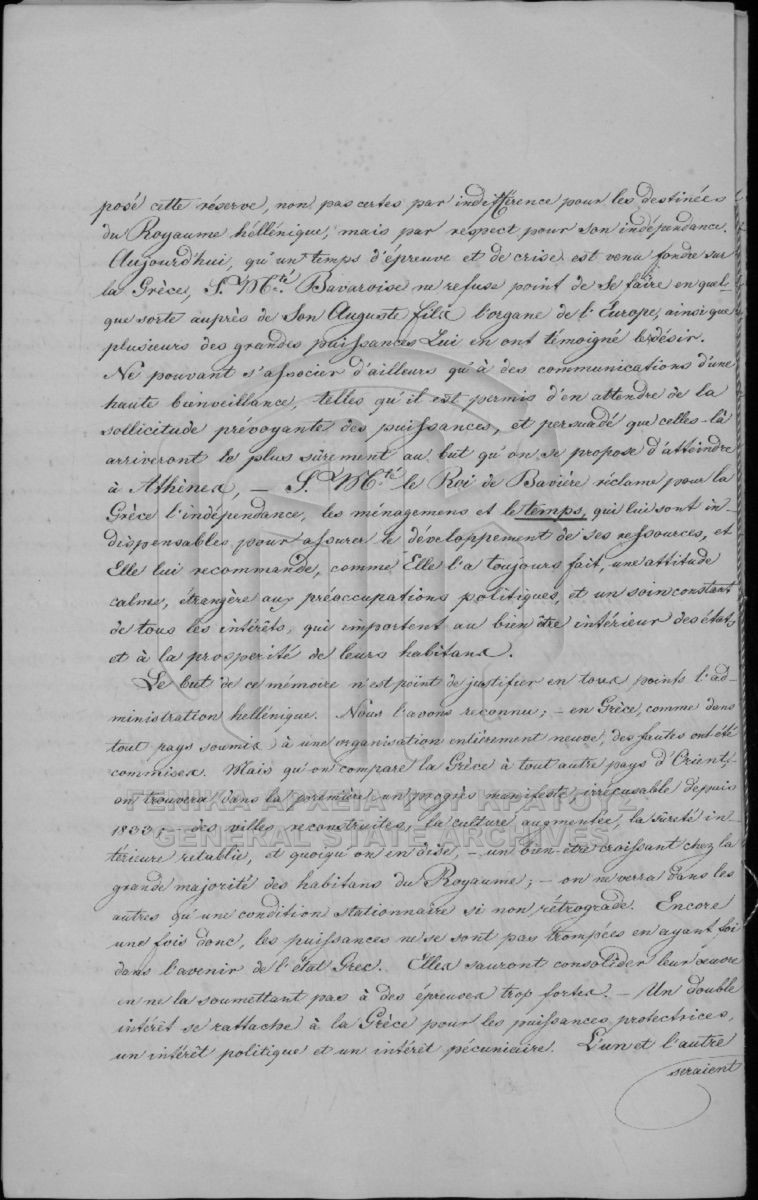 posé cette réserve, non pas certes par indifférence pour les destinées
du Royaume héllénique, mais par respect pour son indépendance.
Aujourd'hui, qu'un temps d'épreuve et de crise est venu fondre sur
la Grèce, S. M.té Bavaroise ne refuse point de Se faire en quel-
que sorte auprès de Son Auguste fils l'organe de l'Europe, ainsi que
plusieurs des grandes puissances Lui en ont témoigné le désir.
Ne pouvant s'associer d'ailleurs qu'à des communications d'une
haute bienveillance, telles qu'il est permis d'en attendre de la
sollicitude prévoyante des puissances, et persuadé que celles-là
arriveront le plus sûrement au but qu'on se propose d'atteindre
à Athènes, — S. M.té le Roi de Bavière réclame pour la
Grèce l'indépendance, les ménagemens et le temps, qui lui sont in-
dispensables pour assurer le développement de ses ressources, et
Elle lui recommande, comme Elle l'a toujours fait, une attitude
calme, étrangère aux préoccupations politiques, et un soin constant
de tous les intérêts, qui importent au bien être intérieur des états
et à la prosperité de leurs habitans.
Le but de ce mémoire n'est point de justifier en tous points l'ad-
ministration hellénique. Nous l'avons reconnu; — en Grèce, comme dans
tout pays soumis à une organisation entièrement neuve, des fautes ont été
commises. Mais qu'on compare la Grèce à tout autre pays d'Orient,
on trouvera dans la première un progrès manifeste, irrécusable depuis
1833; — des villes reconstruites, la culture augmentée, la sûreté in-
térieure retablie, et quoiqu'on en dise, — un bien-être croissant chez la
grande majorité des habitans du Royaume; — on ne verra dans les
autres qu'une condition stationnaire si non rétrograde. Encore
une fois donc, les puissances ne se sont pas trompées en ayant foi
dans l'avenir de l'état Grec. Elles sauront consolider leur œuvre
en ne la soumettant pas à des épreuves trop fortes. — Un double
intérêt se rattache à la Grèce pour les puissances protectrices,
un intérêt politique et un intérêt pécuniaire. L'un et l'autre
seraient
ΓΕΝΙΚΑ ΑΡΧΕΙΑ ΤΟΥ ΚΡΑΤΟΥΣ
GENERAL STATE ARCHIVES